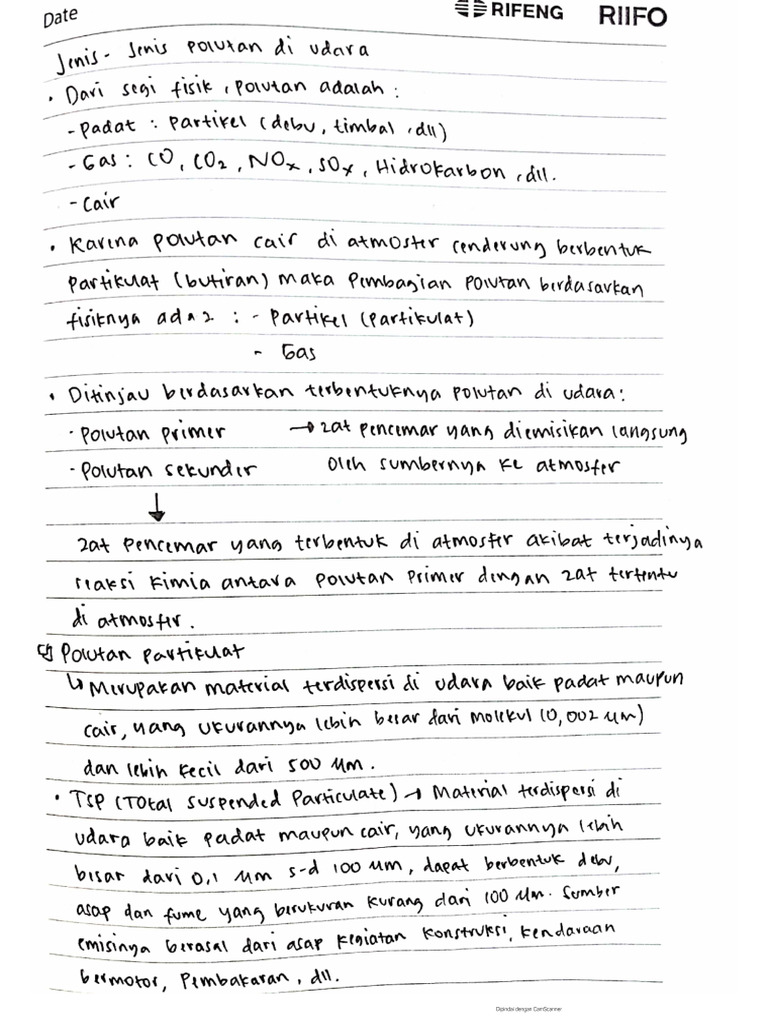 Date
RIFENG RIIFO
Jenis - Jenis polutan di udara
• Dari segi fisik, polutan adalah :
- Padat : partikel (debu, timbal, dll)
- Gas : CO, CO₂, NOx, SOx, Hidrokarbon, dll.
- Cair
• Karena polutan cair di atmosfer cenderung berbentuk
partikulat (butiran) maka pembagian polutan berdasarkan
fisiknya ada 2 : - Partikel (partikulat)
- Gas
• Ditinjau berdasarkan terbentuknya polutan di udara :
- Polutan primer → zat pencemar yang diemisikan langsung
- Polutan sekunder oleh sumbernya ke atmosfer
↓
zat pencemar yang terbentuk di atmosfer akibat terjadinya
reaksi kimia antara polutan primer dengan zat tertentu
di atmosfer.
Polutan partikulat
↳ Merupakan material terdispersi di udara baik padat maupun
cair, yang ukurannya lebih besar dari molekul (0,002 µm)
dan lebih kecil dari 500 µm.
• TSP (Total Suspended Particulate) → Material terdispersi di
udara baik padat maupun cair, yang ukurannya lebih
besar dari 0,1 µm s-d 100 µm, dapat berbentuk debu,
asap dan fume yang berukuran kurang dari 100 µm. Sumber
emisinya berasal dari asap kegiatan konstruksi, kendaraan
bermotor, Pembakaran, dll.
Dipindai dengan CamScanner